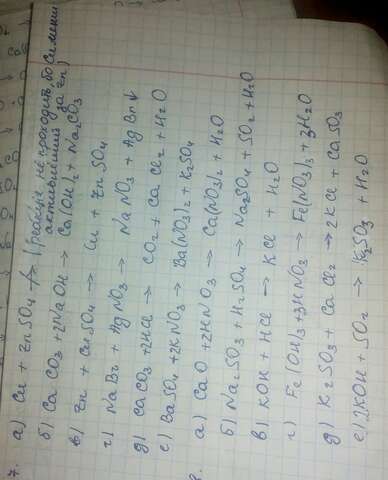 7. а) Cu + ZnSO₄ ↛ (реакція не проходить, бо Cu менш
активніший за Zn)
б) CaCO₃ + 2NaOH → Ca(OH)₂ + Na₂CO₃
в) Zn + CuSO₄ → Cu + ZnSO₄
г) NaBr + AgNO₃ → NaNO₃ + AgBr↓
д) CaCO₃ + 2HCl → CO₂ + CaCl₂ + H₂O
е) BaSO₄ + 2KNO₃ → Ba(NO₃)₂ + K₂SO₄
8. а) CaO + 2HNO₃ → Ca(NO₃)₂ + H₂O
б) Na₂SO₃ + H₂SO₄ → Na₂SO₄ + SO₂ + H₂O
в) KOH + HCl → KCl + H₂O
г) Fe(OH)₃ + 3HNO₃ → Fe(NO₃)₃ + 3H₂O
д) K₂SO₃ + CaCl₂ → 2KCl + CaSO₃
е) 2KOH + SO₂ → K₂SO₃ + H₂O